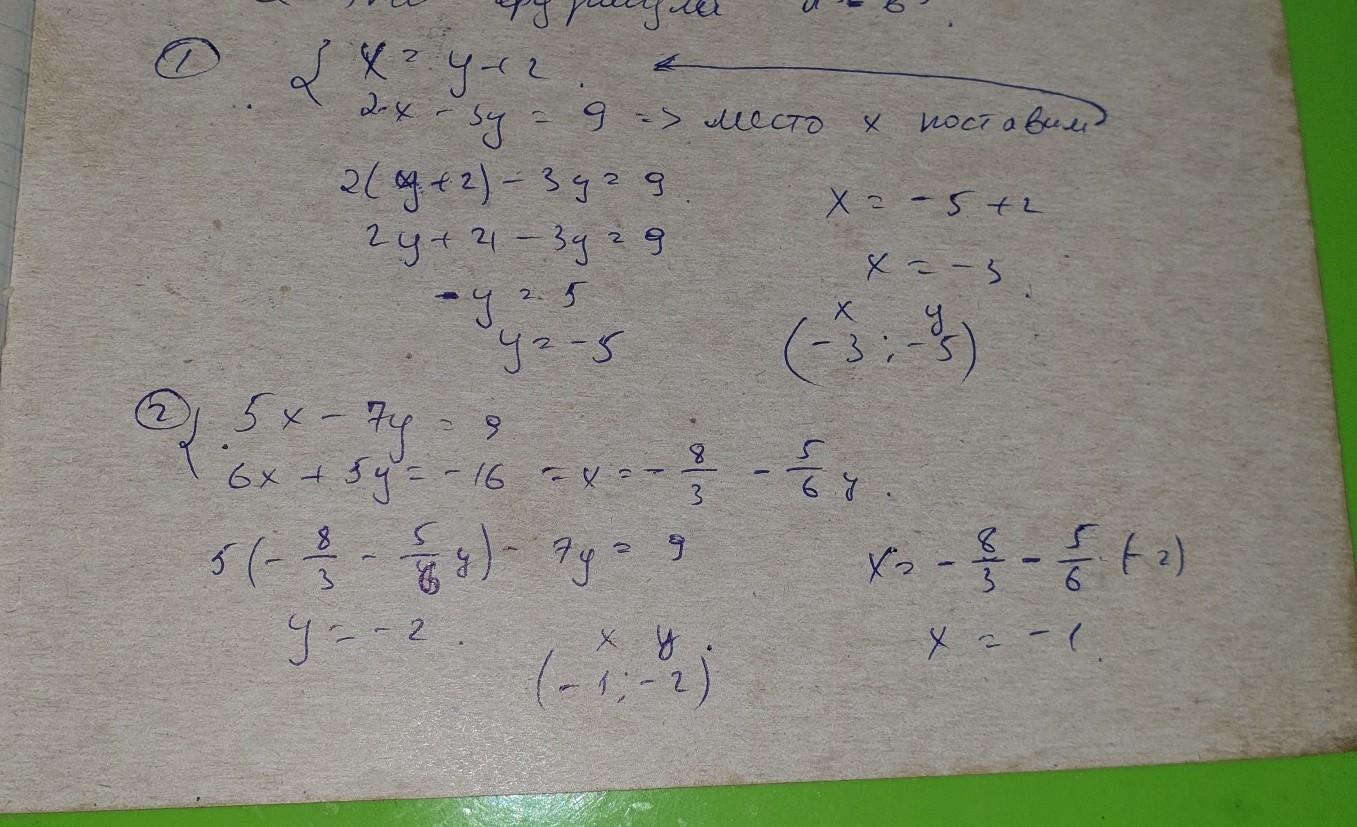 формула
① { x = y + 2
2x - 3y = 9 => место x поставим
2(y+2) - 3y = 9
2y + 4 - 3y = 9
-y = 5
y = -5
x = -5 + 2
x = -3
x y
(-3 ; -5)
② { 5x - 7y = 9
6x + 5y = -16 = x = - 8/3 - 5/6 y.
5(- 8/3 - 5/6 y) - 7y = 9
y = -2.
x = - 8/3 - 5/6 · (-2)
x = -1.
x y.
(-1 ; -2)